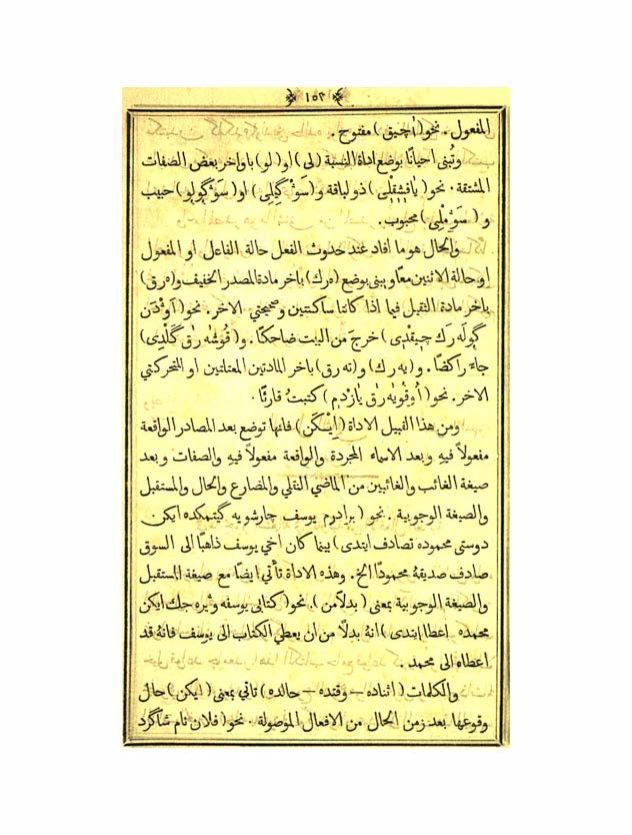 ١٥٣
المفعول. نحو (اچيق) مفتوح.
وتُبنى احيانًا بوضع اداة النسبة (لى) او (لو) باواخر بعض الصفات
المشتقة. نحو (ياقيشقلى) ذو لباقة و (سَوْكِيلِى) او (سَوْكُولو) حبيب
و (سَوِمْلِى) محبوب.
والحال هو ما افاد عند حدوث الفعل حالة الفاعل او المفعول
او حالة الاثنين معًا ويبنى بوضع (ەرك) باخر مادة المصدر الخفيف و (ەرق)
باخر مادة الثقيل فيما اذا كانتا ساكنتين وصحيحتي الاخر. نحو (آوْدَن
گولَەرَك چيقدى) خرجَ من البيت ضاحكًا. و (قُوشەرَق گَلْدِى)
جاءَ راكضًا. و (يەرك) و (يەرق) باخر المادتين المعتلتين او المتحركتي
الاخر. نحو (اُوقُويەرَق يَازْدِم) كتبتُ قارئًا.
ومن هذا القبيل الاداة (اِيْكَن) فانها توضع بعد المصادر الواقعة
مفعولاً فيهِ وبعد الاسماء المجردة والواقعة مفعولاً فيهِ والصفات وبعد
صيغة الغائب والغائبين من الماضي النقلي والمضارع والحال والمستقبل
والصيغة الوجوبية. نحو (برادرم يوسف چارشويه گيتمكده ايكن
دوستى محموده تصادف ايتدى) بينما كان اخي يوسف ذاهبًا الى السوق
صادف صديقهُ محمودًا الخ. وهذه الاداة تأتي ايضًا مع صيغة المستقبل
والصيغة الوجوبية بمعنى (بدلاً من). نحو (كتابى يوسفه ويره جك ايكن
محمده اعطا ايتدى) انهُ بدلًا من ان يعطي الكتاب الى يوسف فانهُ قد
اعطاه الى محمد.
والكلمات (اثناده – وقتده – حالده) تاتي بمعنى (ايكن) حال
وقوعها بعد زمن الحال من الافعال الموصولة. نحو (فلان نام شاگرد